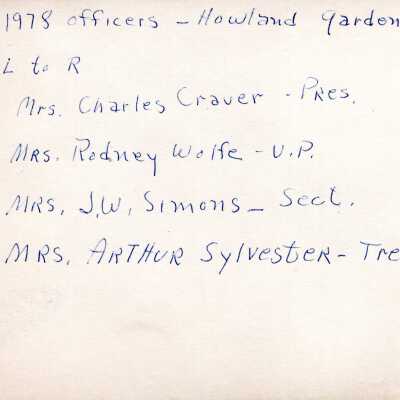 1978 officers - Howland Garden
L to R
Mrs. Charles Craver - Pres.
Mrs. Rodney Wolfe - V.P.
Mrs. J.W. Simons - Sect.
MRS. ARTHUR Sylvester - Tre